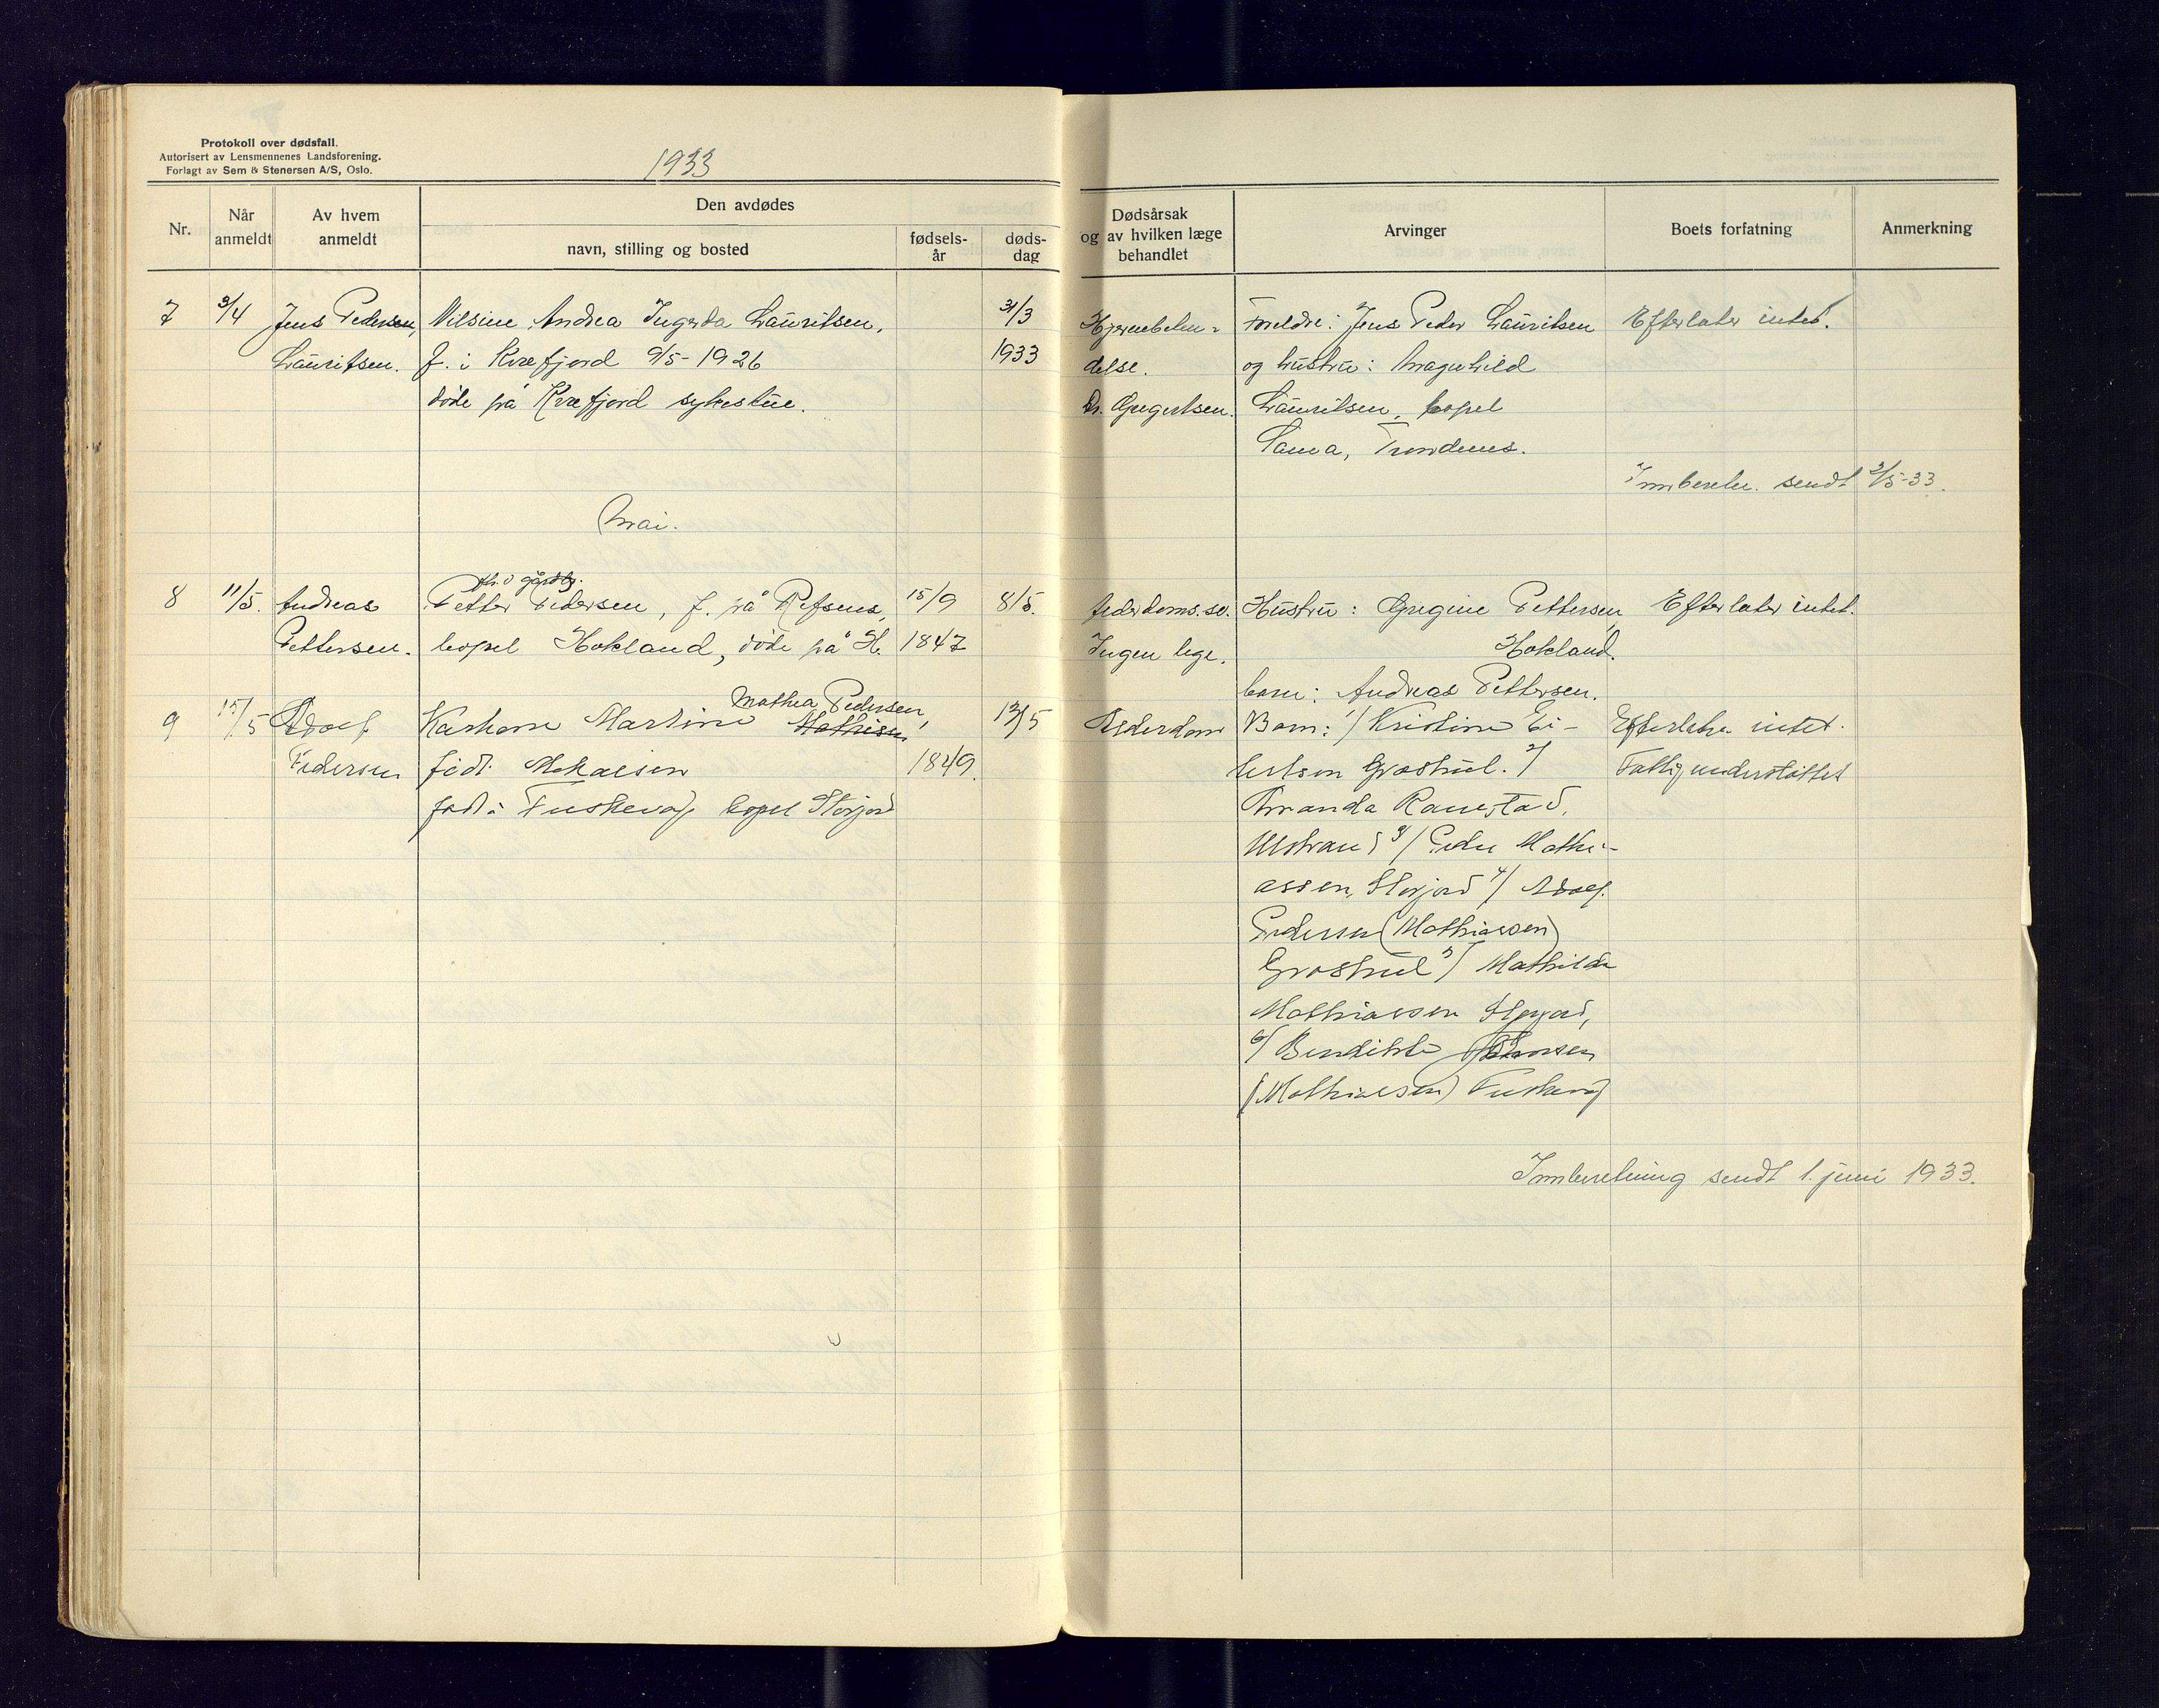 Protokoll over dødsfall.
Autorisert av Lensmennenes Landsforening.
Forlagt av Sem & Stenersen A/S, Oslo.
1933
Nr.
Når anmeldt
Av hvem anmeldt
Den avdødes
navn, stilling og bosted
fødsels-år
døds-dag
Dødsårsak og av hvilken læge behandlet
Arvinger
Boets forfatning
Anmerkning
7 3/4 Jens Pedersen, Nilsine Andrea Ingerda Lauritsen, 31/3
Lauritsen. f. i Kvæfjord 9/5-1926 1933
døde på Kvæfjord sykestue.
Hjernebeten-
delse.
Dr. Gregertsen.
Foreldre: Jens Peder Lauritsen
og hustru: Magnhild
Lauritsen, bopel
Sama, Trondenes.
Efterlater intet.
Innberetn. sendt 2/5-33.
Mai.
8 11/5. Andreas Petter Pedersen, f. på Refsnes, 15/9 8/5.
fh.v. gårdbr.
Pettersen. bopel Hokland, døde på H. 1847
Alderdoms.sv.
Ingen lege.
Hustru: Gregine Pettersen,
Hokland.
barn: Andreas Pettersen.
Efterlater intet.
9 15/5 Adolf Karen Martine Mathisen 12/5
Mathea Pedersen,
Pedersen født Mikalsen 1849.
født i Fuskevåg bopel Storjord
Alderdom
Barn: 1/ Kristine Ei-
lertsen Grøstrul. 2/
Amanda Ranestad,
Ulstrand 3/ Peder Mathi-
assen, Storjord 4/ Adolf
Pedersen (Mathiassen)
Grøstrul 5/ Mathilde
Mathiassen Storjord,
6/ Bendikte
(Mathiassen) Fuskevåg
Efterlater intet.
Fattigunderstøttet
Innberetning sendt 1. juni 1933.